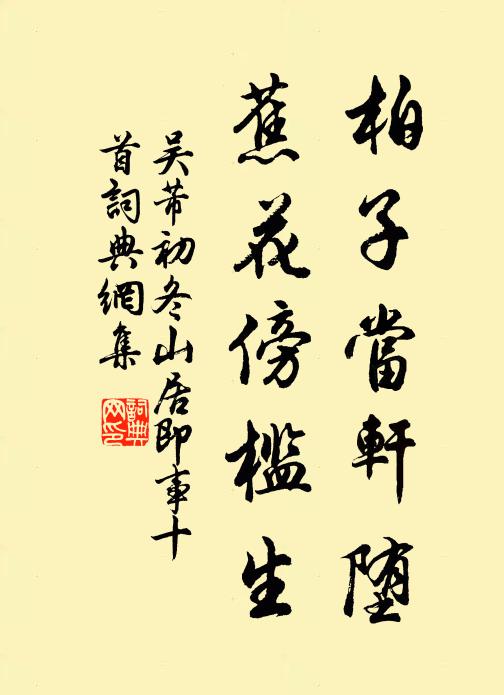 柏子當軒墮
蕉花傍檻生
吴芾初冬山居即事十
首詞典網集
詞典
网印